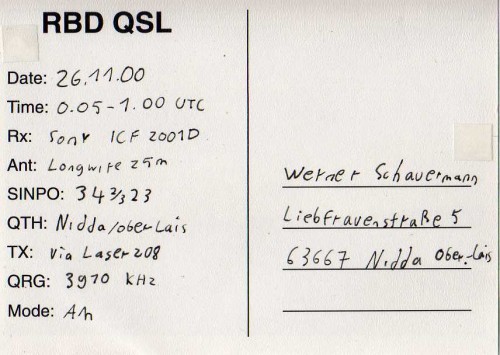 RBD QSL
Date: 26.11.00
Time: 0.05-1.00 UTC
Rx: Sony ICF 2001D
Ant: Longwire 25m
SINPO: 34 2/3 23
QTH: Nidda/ober Lais
TX: via Laser 208
QRG: 3970 kHz
Mode: AM
Werner Schauermann
Liebfrauenstraße 5
63667 Nidda Ober-Lais